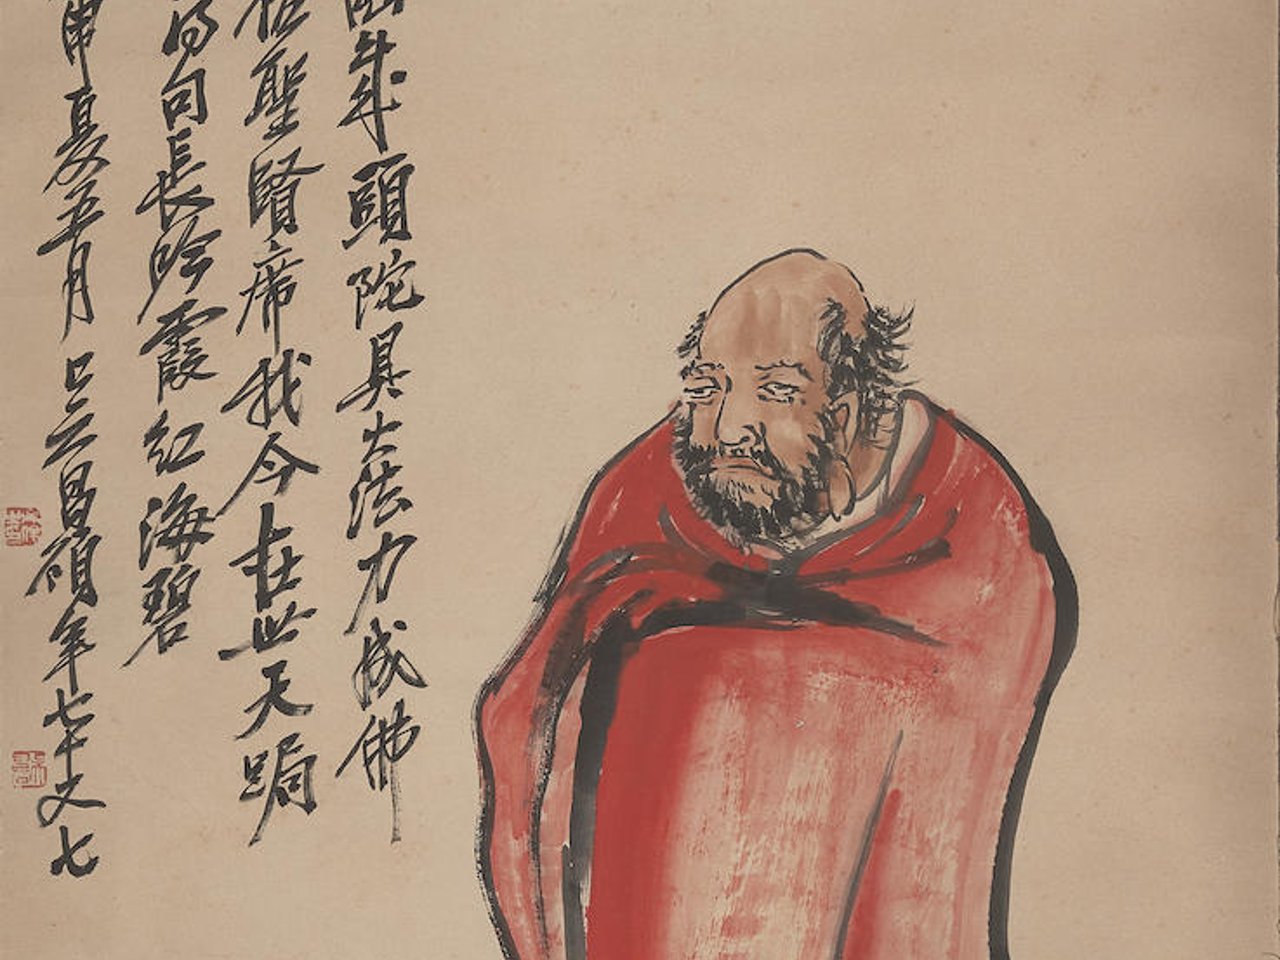 歲頭陀具大法力成佛
聖賢席我今在世天跼
句長吟霞紅海碧
申夏五月吳昌碩年七十又七